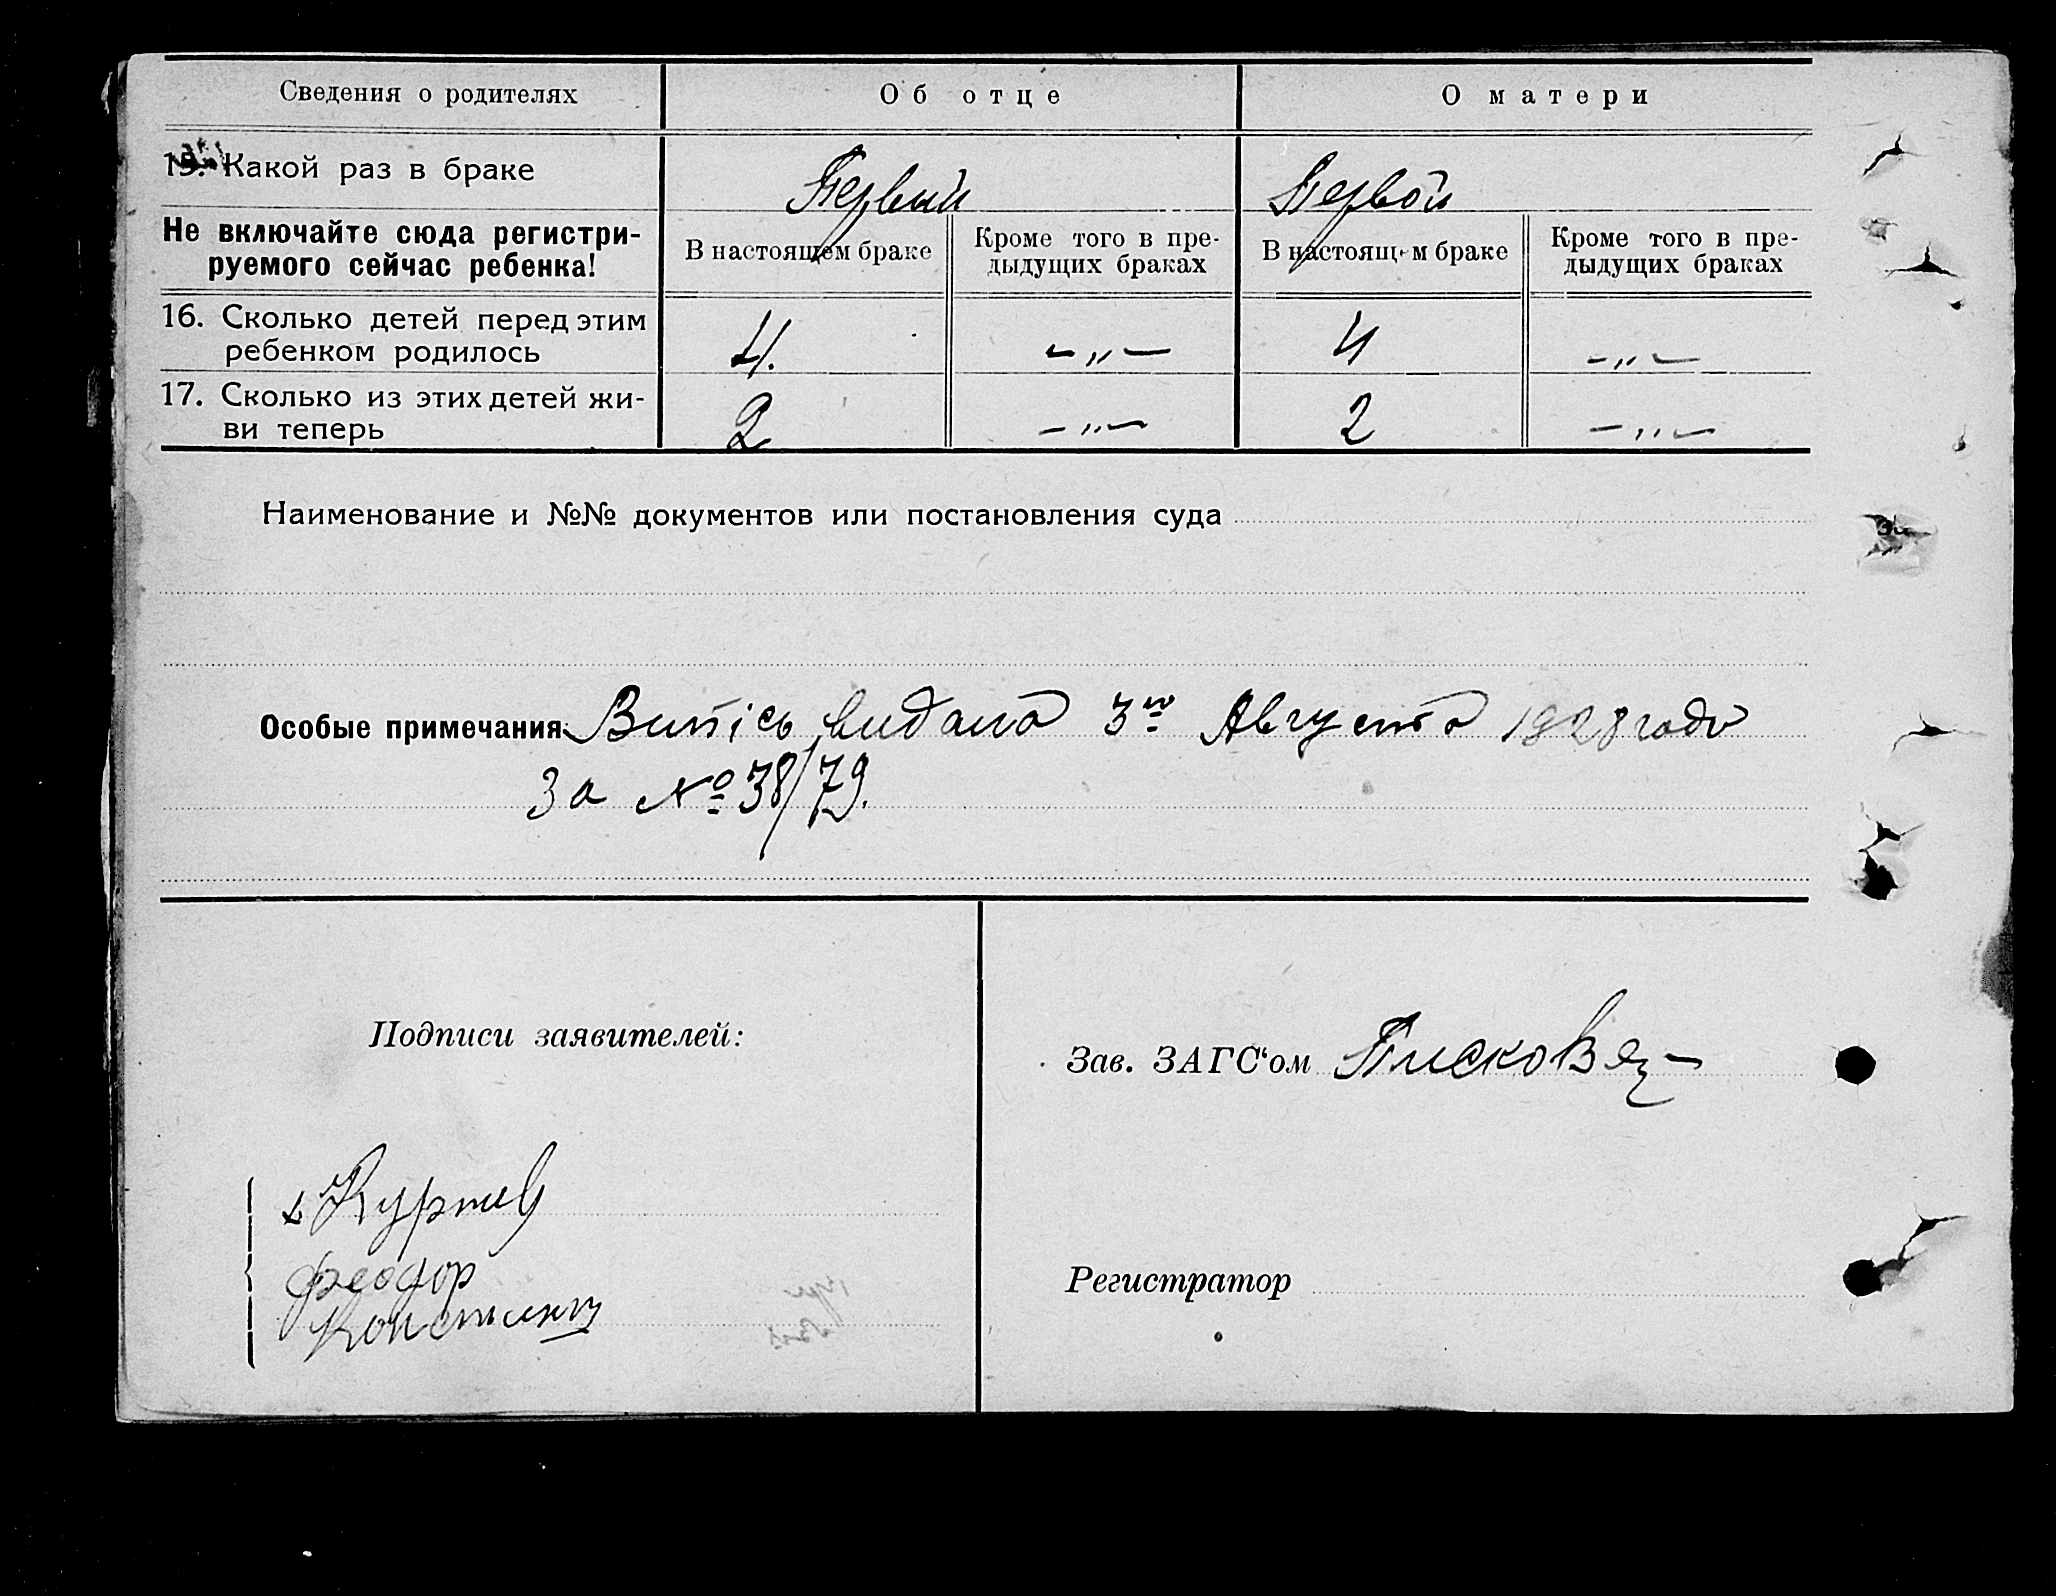 Сведения о родителях
Об отце
О матери
15. Какой раз в браке
Первый
Первой
Не включайте сюда регистри-
руемого сейчас ребенка!
В настоящем браке
Кроме того в пре-
дыдущих браках
В настоящем браке
Кроме того в пре-
дыдущих браках
16. Сколько детей перед этим
ребенком родилось
4.
-„-
4
-„-
17. Сколько из этих детей жи-
ви теперь
2
-„-
2
-„-
Наименование и №№ документов или постановления суда
Особые примечания: Випісь видана 3го Августа 1928 года
За № 38/79.
Подписи заявителей:
Зав. ЗАГС‘ом
феодор
Регистратор